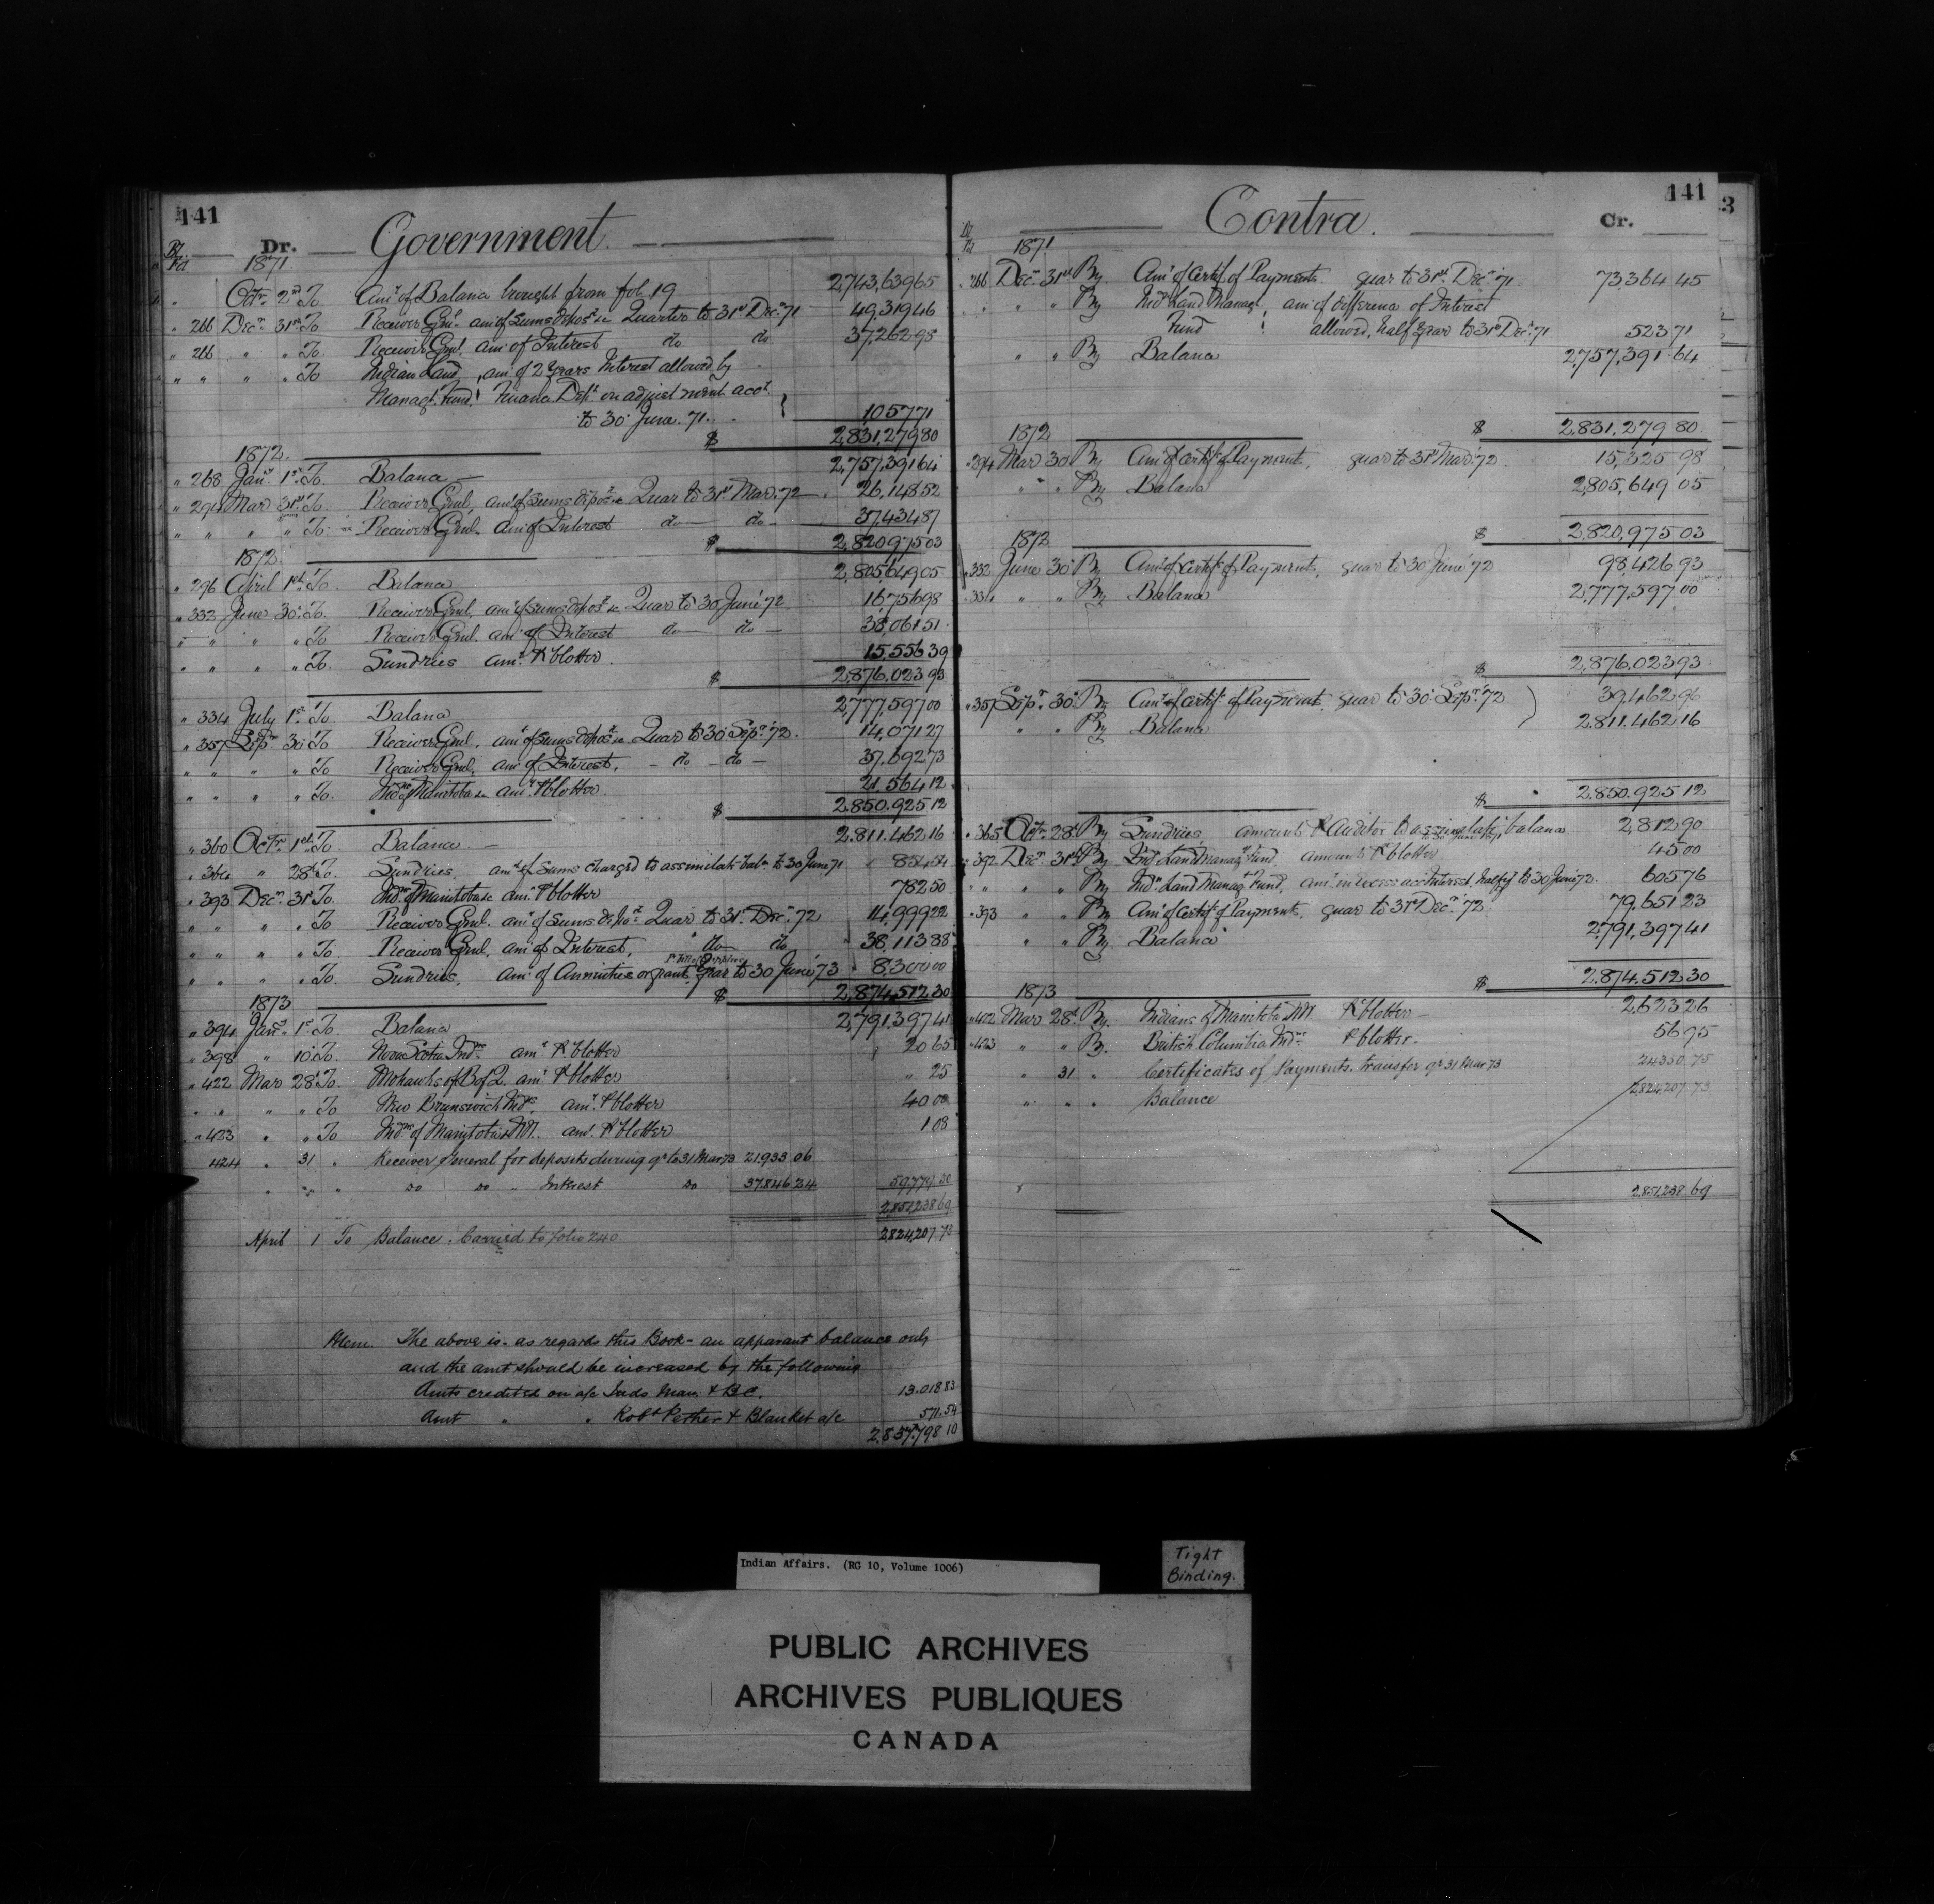 141
Dr. Government.
Fol 1871.
" Octr. 2nd To Amt of Balance brought from fol. 19 2,743,639 65
" 266 Decr. 31st To Receiver Genl. amt of sums depost in Quarter to 31st Decr. 71 49,319 46
" 266 " " To Receiver Genl. amt of Interest do do 37,262 98
" " " " To Indian Land , amt of 2 Years Interest allowed by
Managt. Fund! Finance Dept. on adjustment acct.
to 30 June. 71. 1057 71
$ 2,831,279 80
1872.
" 268 Jany 1st To Balance 2,757,391 64
" 294 Mar 31st To Receiver Genl, amt of sums depost in Quar to 31st Mar. '72 26,148 52
" " " " To Receiver Genl. amt of Interest do do 37,434 87
$ 2,820,975 03
1872.
" 296 April 1st To Balance 2,805,649 05
" 332 June 30 To Receiver Genl, amt of sums depost in Quar to 30 June '72 16,756 98
" " " " To Receiver Genl. amt of Interest do do 38,061 51
" " " " To Sundries amt. P blotter. 15,556 39
$ 2,876,023 93
" 334 July 1st To Balance 2,777,597 00
" 357 Sepr 30 To Receiver Genl, amt of sums depost in Quar to 30 Sepr. '72. 14,071 27
" " " " To Receiver Genl, amt of Interest. do do 37,692 73
" " " " To Inds of Manitoba &c amt. P blotter. 21,564 12
$ 2,850,925 12
" 360 Octr. 1st To Balance. 2,811,462 16
" 364 " 28th To Sundries, amt of Sums charged to assimilate balce. to 30 June 71 854 54
" 393 Decr. 31st To Inds of Manitoba &c amt. P blotter 782 50
" " " " To Receiver Genl. amt of sums depost Quar to 31st Decr. '72 14,999 22
" " " " To Receiver Genl, amt of Interest, do do 38,113 88
" " " " To Sundries, amt of Annuities or grant, year to 30 June '73 8,300 00
$ 2,874,512 30
1873
" 394 Jany 1st To Balance 2,791,397 41
" 398 " 10 To Nova Scotia Inds. amt P blotter 20 65
" 422 Mar 28 To Mohawks of B of Q. amt P blotter " 25
" " " " To New Brunswick Inds. amt. P blotter 40 00
" 423 " " To Inds of Manitoba & NW. amt. P blotter 1 08
424 " 31 " Receiver General for deposits during qr to 31 Mar 73 21,933 06
" " " do do " Interest do 37,846 24 59779 30
2,851,238 69
April 1 To Balance, Carried to folio 240 2,824,207.73
Mem. The above is - as regards this Book - an apparant balance only
and the amt should be increased by the following
Amts credited on a/c Inds Man. & BC. 13,018 83
Amt " " Robt Pether & Blanket a/c 571.54
2,837,798 10
141
Contra. Cr.
3
Fol 1871
" 266 Decr. 31st By Amt of Certif. of Payments quar to 31st Decr. '71 73,364 45
" " " By Inds Land Managt, amt of difference of Interest
Fund ! allowed, half year to 31st Decr. 71. 523 71
" " By Balance 2,757,391 64
$ 2,831,279 80
1872
" 294 Mar 30 By Amt of certif of Payments, quar to 31st Mar. '72. 15,325 98
" " " By Balance 2,805,649 05
$ 2,820,975 03
1872
" 332 June 30 By Amt of certif. of Payments, quar to 30 June '72 98,426 93
" 334 " " By Balance 2,777,597 00
$ 2,876,023 93
" 357 Sepr. 30 By Amt of certif. of Payments, quar to 30 Sepr. '72 39,462 96
" " By Balance 2,811,462 16
$ 2,850,925 12
" 365 Octr. 28th By Sundries amounts P Auditor to assimilate balance 2,812 90
to 30 June 1871
" 392 Decr. 31st By Inds Land Managt Fund, amounts P blotter 45 00
" " " " By Inds Land Managt Fund, amt in excess acc Interest, half yr to 30 June 72. 605 76
" 393 " " By Amt of Certif. of Payments, quar to 31st Decr. '72. 79,651 23
" " By Balance 2,791,397 41
$ 2,874,512 30
1873
" 402 Mar 28th By. Indians of Manitoba & NW. P blotter 2,623 26
" 423 " " By. British Columbia Inds P blotter. 56 95
" 31 " Certificates of Payments, transfer qr 31 Mar 73 24350.75
" " " Balance 2824207.73
2,851,238 69
Indian Affairs. (RG 10, Volume 1006)
Tight
Binding.
PUBLIC ARCHIVES
ARCHIVES PUBLIQUES
CANADA